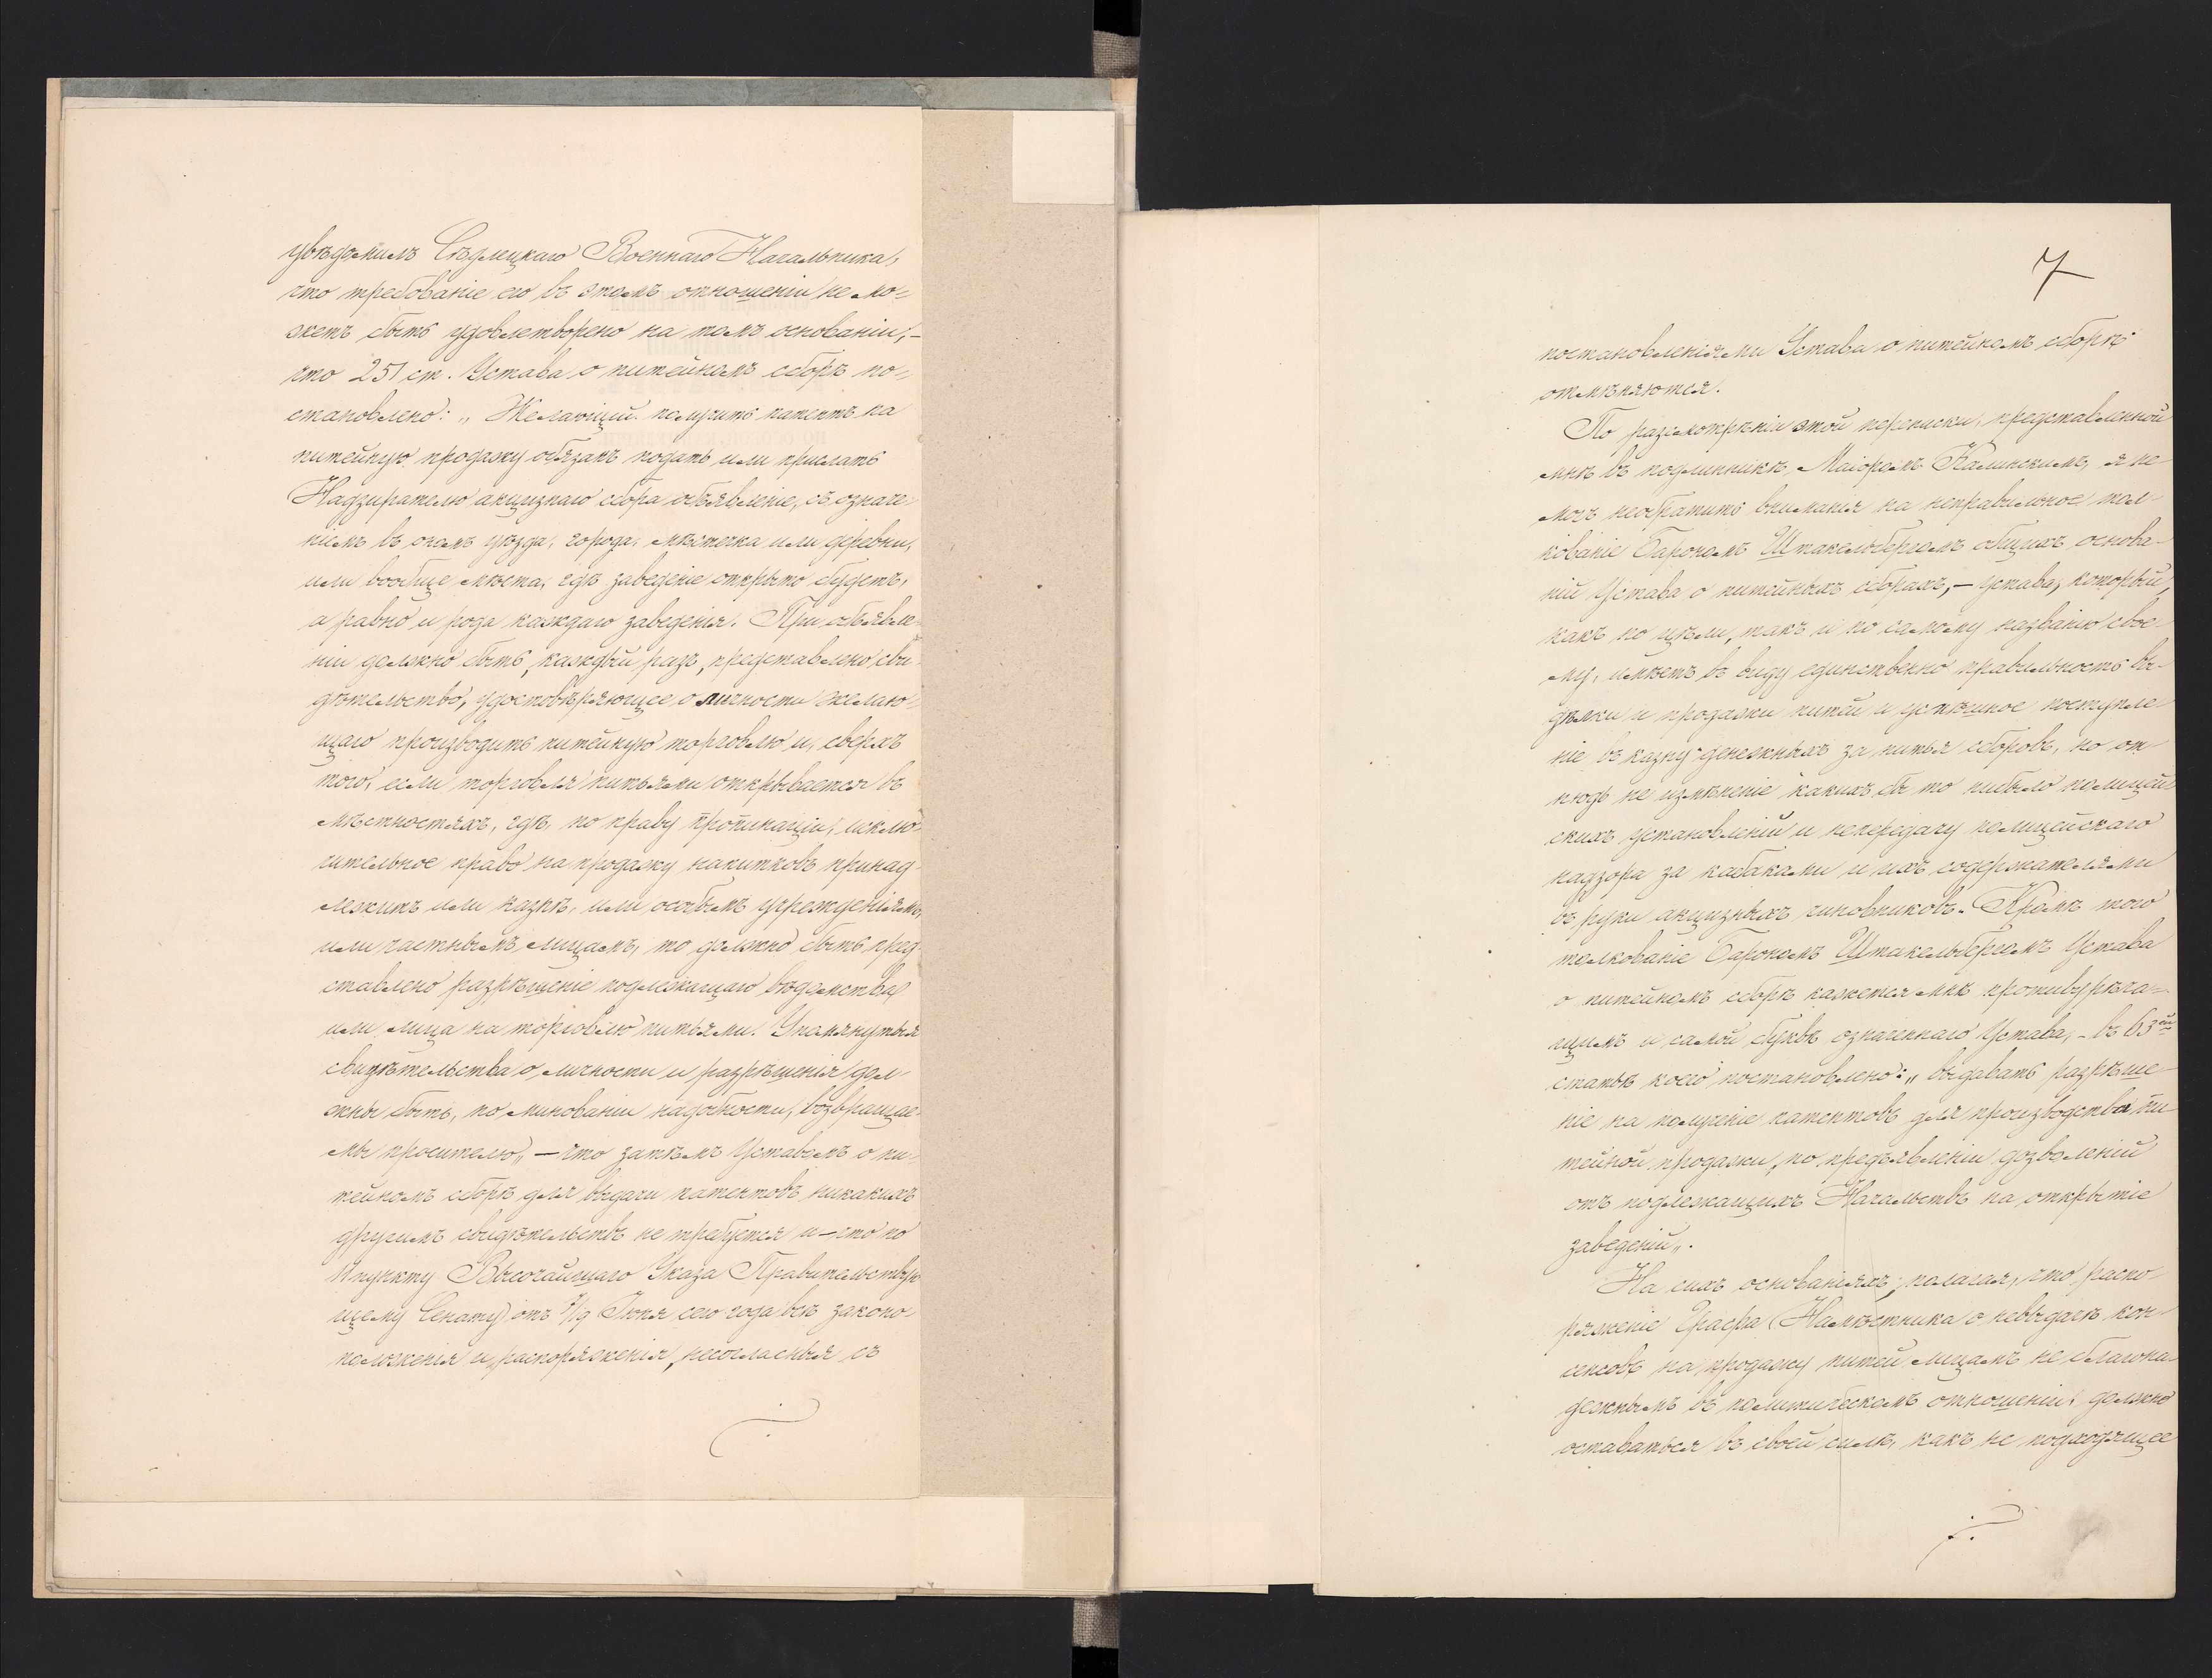 увѣдомилъ Сѣдлецкаго Военнаго Начальника,
что требованіе его въ этомъ отношеніи не мо-
жетъ быть удовлетворено на томъ основаніи,-
что 251 ст. Устава о питейномъ сборѣ по-
становлено: „Желающій получить патентъ на
питейную продажу обязанъ подать или прислать
Надзирателю акцизнаго сбора объявленіе, съ означе-
ніемъ въ ономъ уѣзда, города, мѣстечка или деревни,
или вообще мѣста, гдѣ заведеніе открыто будетъ,
а равно и рода каждаго заведенія. При объявле-
ніи должно быть, каждый разъ, представлено сви-
дѣтельство, удостовѣряющее о личности желаю-
щаго производить питейную торговлю и, сверхъ
того, если торговля питьями открывается въ
мѣстностяхъ, гдѣ, по праву пропинаціи, исклю-
чительное право на продажу напитковъ принад-
лежитъ или казнѣ, или особымъ учрежденіямъ,
или частнымъ лицамъ, то должно быть пред-
ставлено разрѣшеніе подлежащаго вѣдомства
или лица на торговлю питьями. Упомянутыя
свидѣтельства о личности и разрѣшенія дол-
жны быть, по минованіи надобности, возвращае-
мы просителю„ — что затѣмъ Уставомъ о пи-
тейномъ сборѣ для выдачи патентовъ никакихъ
другихъ свидѣтельствъ не требуется и – что по
11 пункту Высочайшаго Указа Правительствую-
щему Сенату отъ /9 Іюня сего года всѣ законо-
положенія и распоряженія, несогласныя съ
7
постановленіями Устава о питейномъ сборѣ
отмѣняются.
По разсмотрѣніи этой переписки, представленной
мнѣ въ подлинникѣ Маіоромъ Калинскимъ, я не-
могъ необратить вниманія на неправильное тол-
кованіе Барономъ Штакельбергомъ общихъ основа-
ній Устава о питейныхъ сборахъ, – устава, который,
какъ по цѣли, такъ и по самому названію свое-
му, имѣетъ въ виду единственно правильность вы-
дѣлки и продажи питей и успѣшное поступле-
ніе въ казну денежныхъ за питья сборовъ, но от-
нюдь не измѣненіе какихъ бы то нибыло полицей-
скихъ установленій и непередачу полицейскаго
надзора за кабаками и ихъ содержателями
въ руки акцизныхъ чиновниковъ. Кромѣ того
толкованіе Барономъ Штакельбергомъ Устава
о питейномъ сборѣ кажется мнѣ противурѣча-
щимъ и самой буквѣ означеннаго Устава, – въ 63й
статьѣ коего постановлено: „выдавать разрѣше-
ніе на полученіе патентовъ для производства пи-
тейной продажи, по предъявленіи дозволеній
отъ подлежащихъ Начальствъ на открытіе
заведеній„.
На сихъ основаніяхъ, полагая, что распо-
ряженіе Графа Намѣстника о невыдачѣ кон-
сенсовъ на продажу питей лицамъ не благона-
дежнымъ въ политическомъ отношеніи, должно
оставаться въ своей силѣ, какъ не подходящее